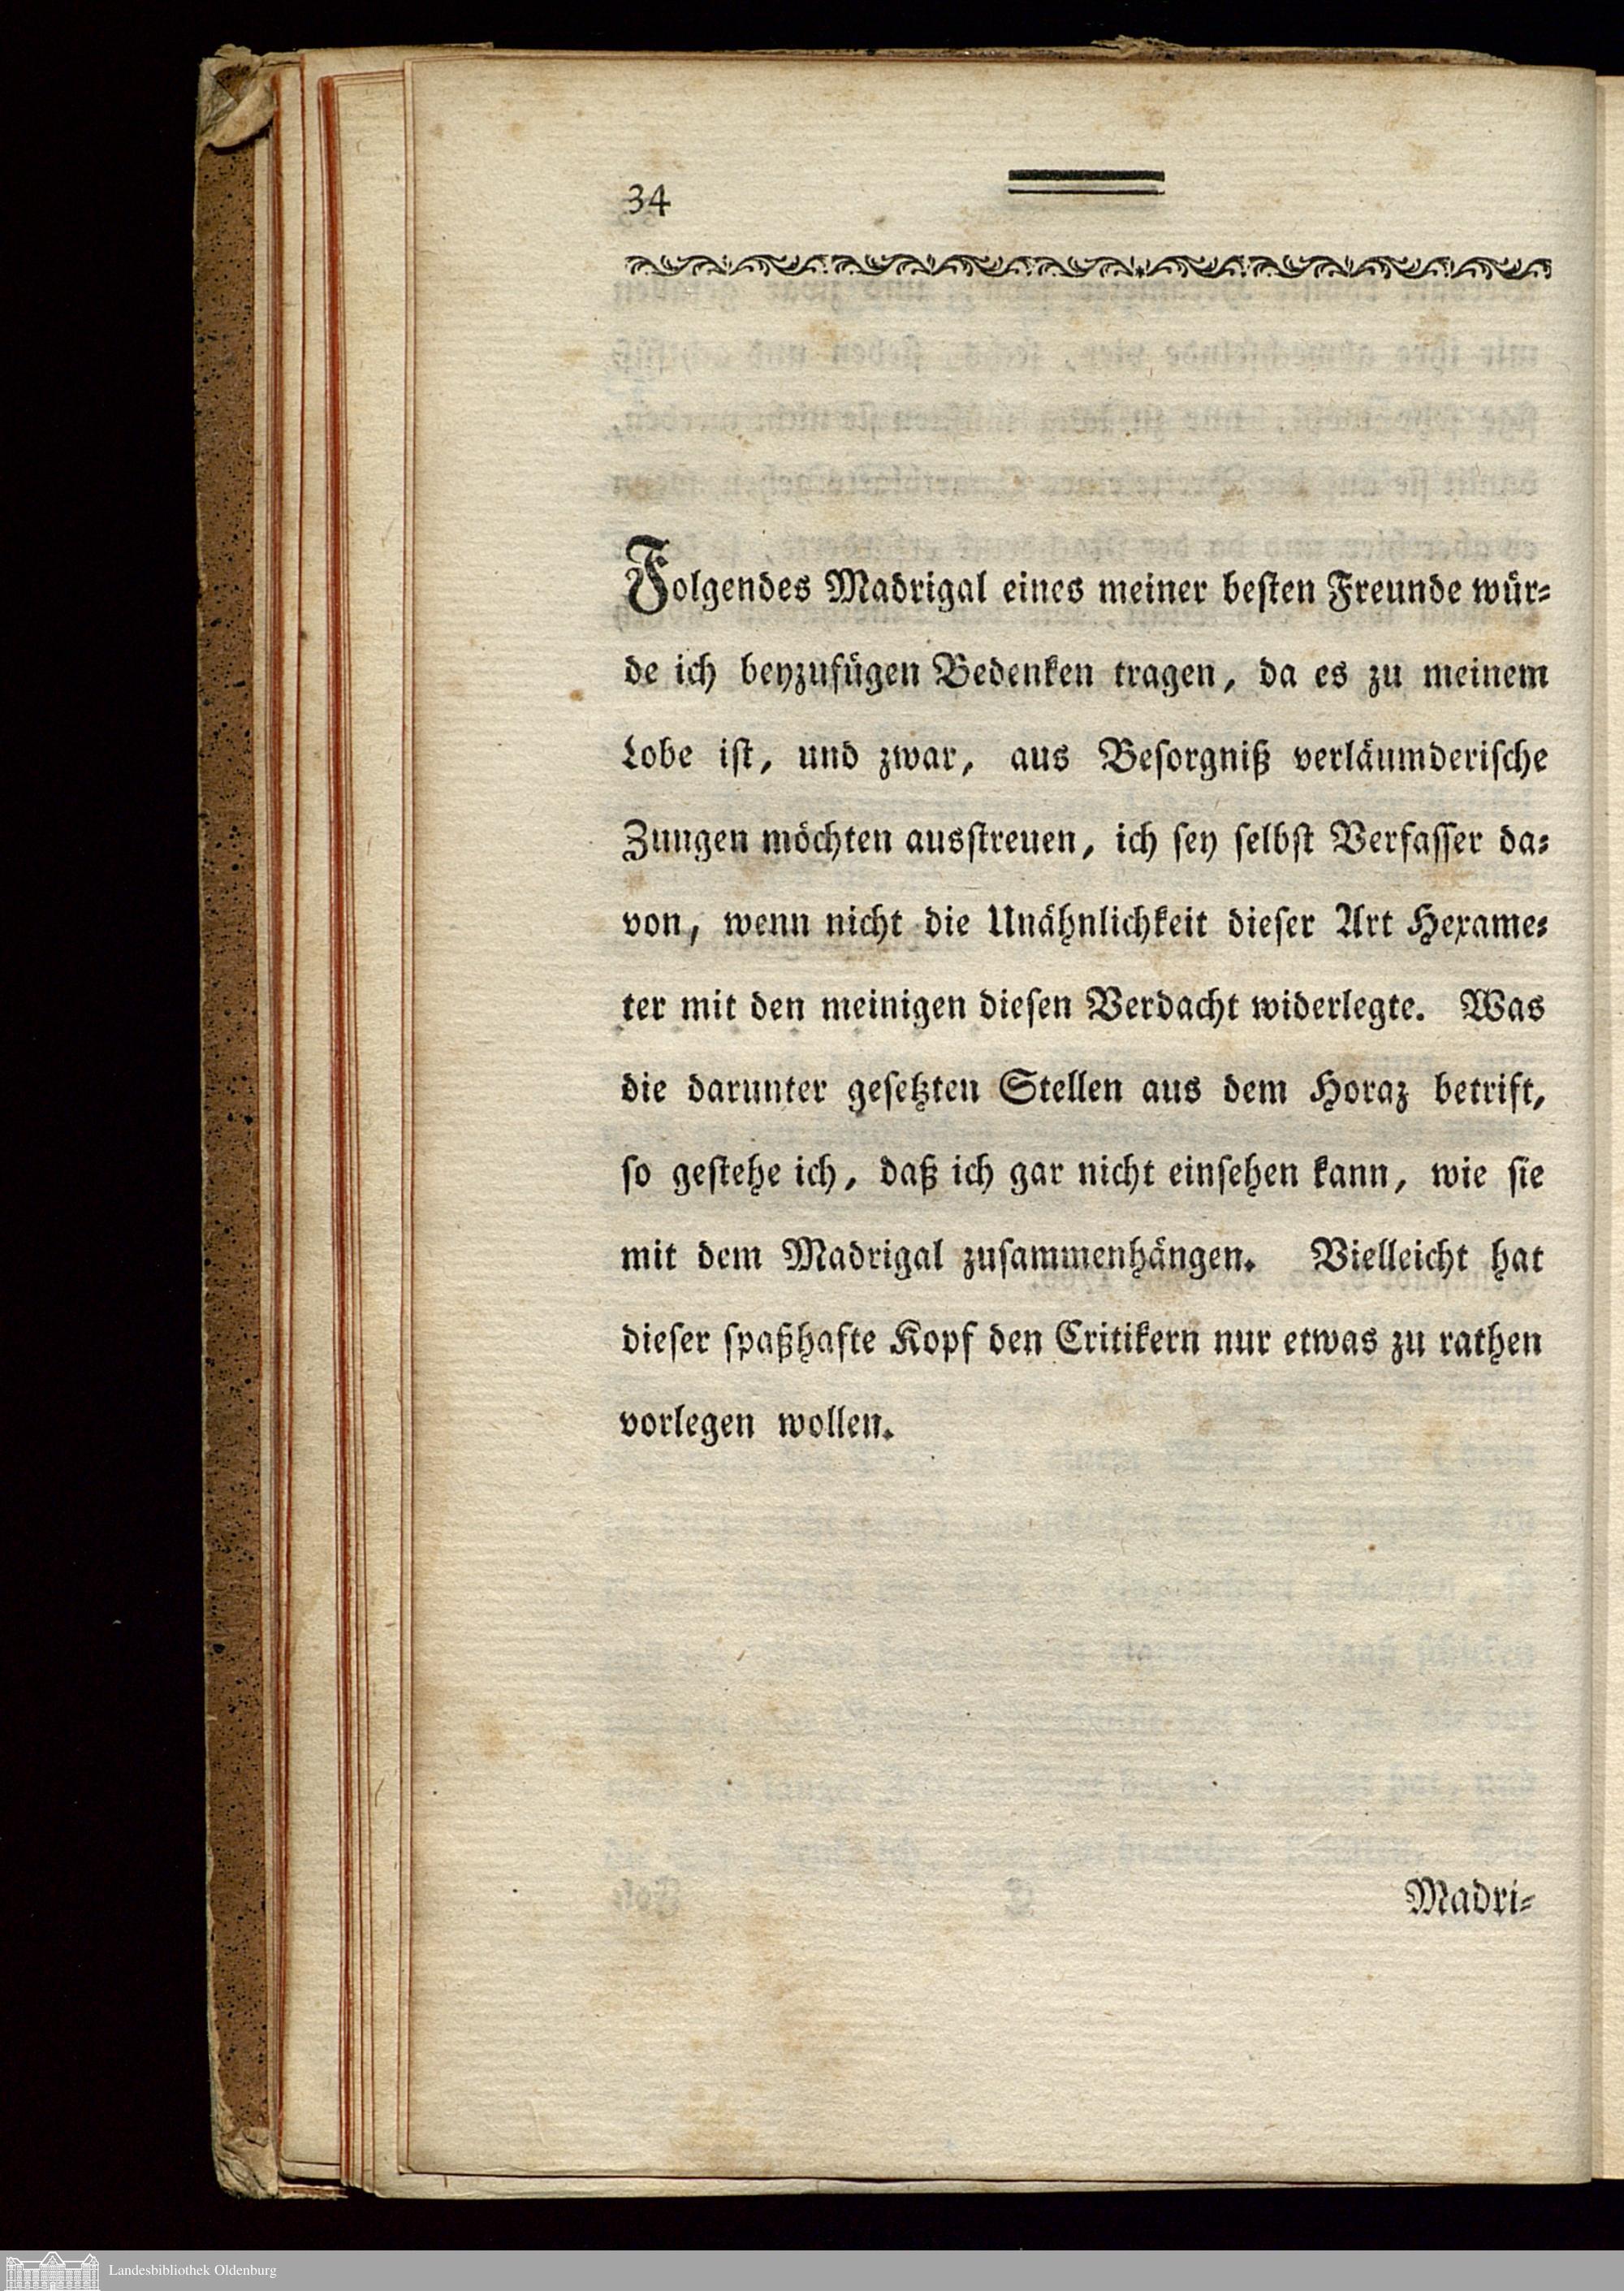 34
Folgendes Madrigal eines meiner besten Freunde wür-
de ich beyzufügen Bedenken tragen, da es zu meinem
Lobe ist, und zwar, aus Besorgniß verläumderische
Zungen möchten ausstreuen, ich sey selbst Verfasser da-
von, wenn nicht die Unähnlichkeit dieser Art Hexame-
ter mit den meinigen diesen Verdacht widerlegte. Was
die darunter gesetzten Stellen aus dem Horaz betrift,
so gestehe ich, daß ich gar nicht einsehen kann, wie sie
mit dem Madrigal zusammenhängen. Vielleicht hat
dieser spaßhafte Kopf den Critikern nur etwas zu rathen
vorlegen wollen.
Madri-
Landesbibliothek Oldenburg